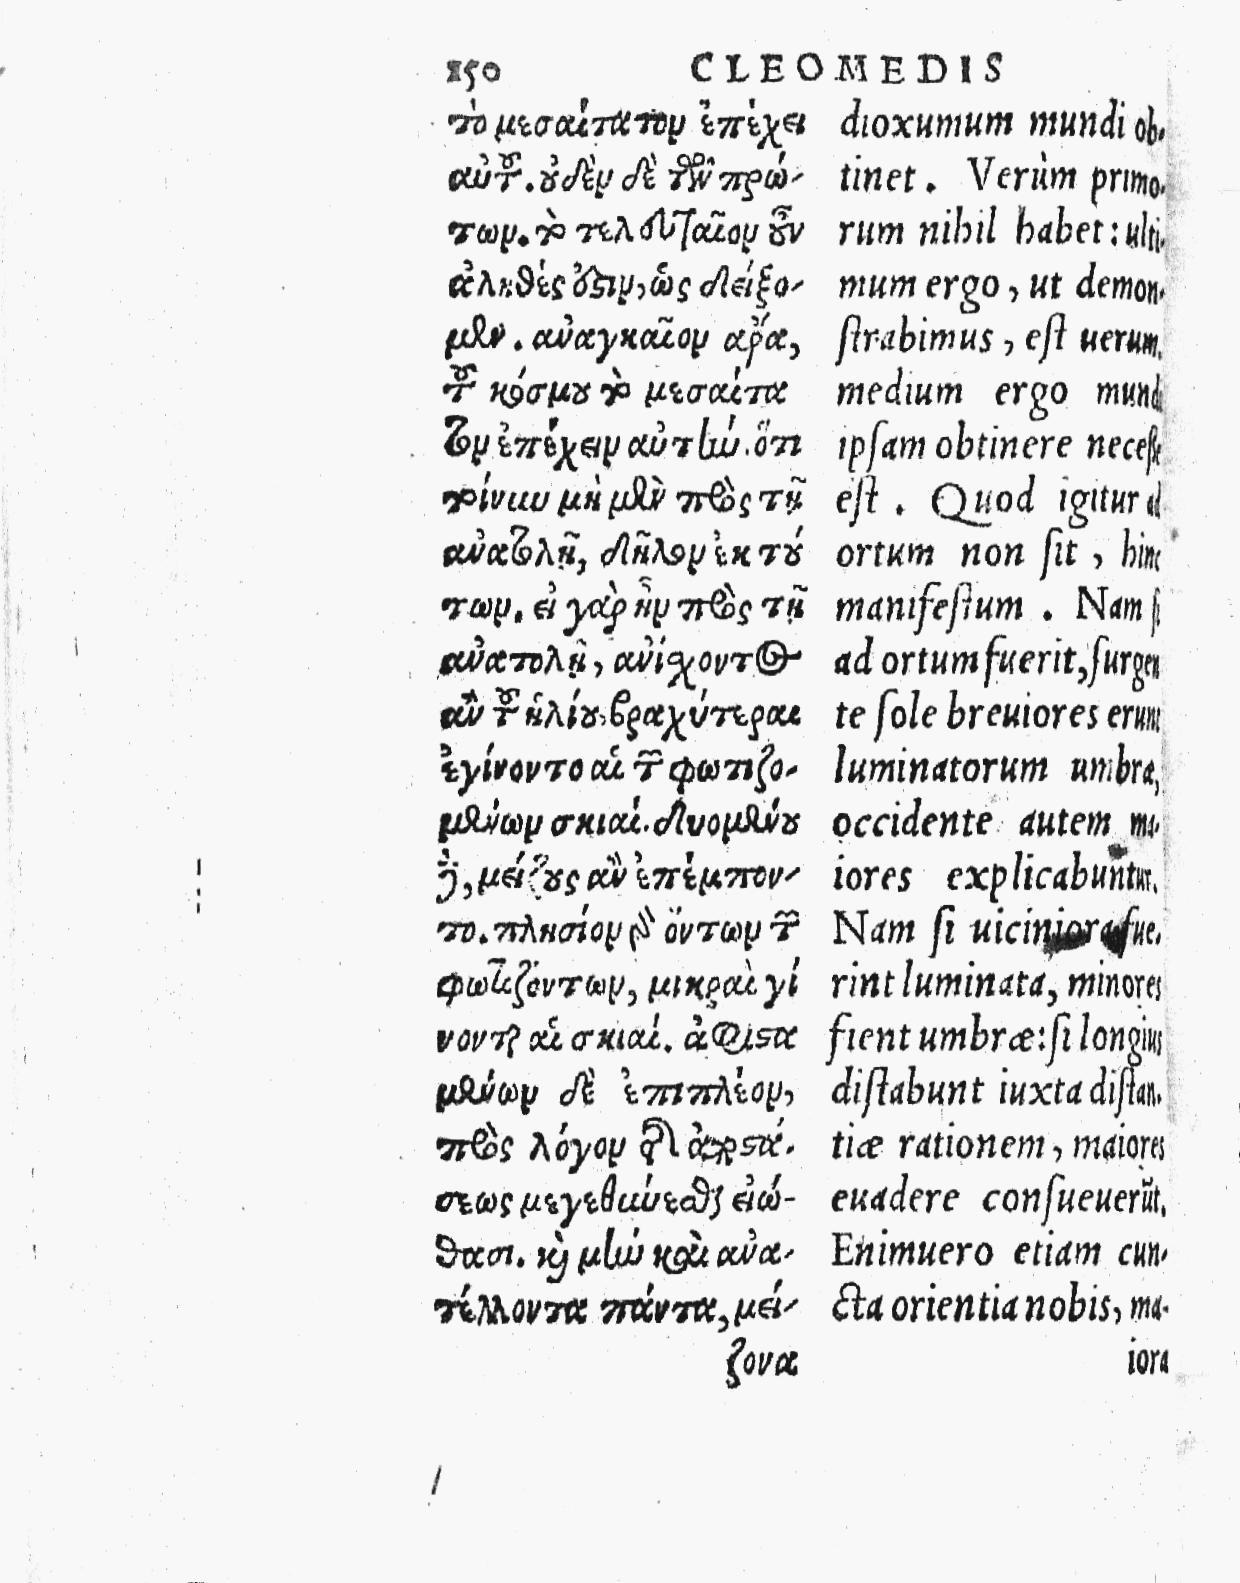 150 CLEOMEDIS
τὸ μεσαίτατον ἐπέχει
αὐτοῦ. οὐδὲν δὲ τῶν πρώ-
των. τὸ τελευταῖον οὖν
ἀληθές ὅστιν, ὡς δείξο-
μεν. ἀναγκαῖον ἄρα,
τοῦ κόσμου τὸ μεσαίτα
τον ἐπέχειν αὐτὴν. ὅτι
τοίνυν μὴ μὲν πρὸς τῇ
ἀνατολῇ, δῆλον ἐκ τού
των. εἰ γὰρ ἦν πρὸς τῇ
ἀνατολῇ, ἀνίσχοντος
ἂν τοῦ ἡλίου βραχύτεραι
ἐγίνοντο αἱ τῶν φωτιζο-
μένων σκιαί. δυομένου
δὲ, μείζους ἂν ἐπέμπον-
το. πλησίον γὰρ ὄντων τῶν
φωτιζόντων, μικραὶ γί
νονται αἱ σκιαί. ἀφιστα
μένων δὲ ἐπιπλέον,
πρὸς λόγον τῆς ἀποστά-
σεως μεγεθύνεσθαι εἰώ-
θασι. καὶ μὴν καὶ ἀνα-
τέλλοντα πάντα, μεί-
ζονα
dioxumum mundi ob-
tinet. Verùm primo-
rum nihil habet: ulti-
mum ergo, ut demon-
strabimus, est uerum.
medium ergo mundi
ipsam obtinere necesse
est. Quod igitur ad
ortum non sit, hinc
manifestum. Nam si
ad ortum fuerit, surgen
te sole breuiores erunt
luminatorum umbræ,
occidente autem ma-
iores explicabuntur.
Nam si uiciniora fue-
rint luminata, minores
fient umbræ: si longius
distabunt iuxta distan-
tiæ rationem, maiores
euadere consueuerũt.
Enimuero etiam cun-
cta orientia nobis, ma-
iora